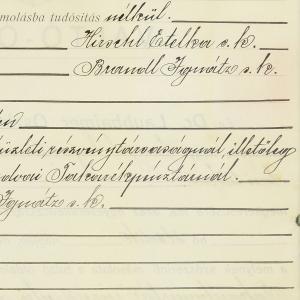 molásba tudósítás nélkül.
Hirschl Etelka s. k.
Brandl Ignátz s. k.
üzleti részvénytársaságnál illetőleg
udvari Takarékpénztánál.
Ignátz s. k.